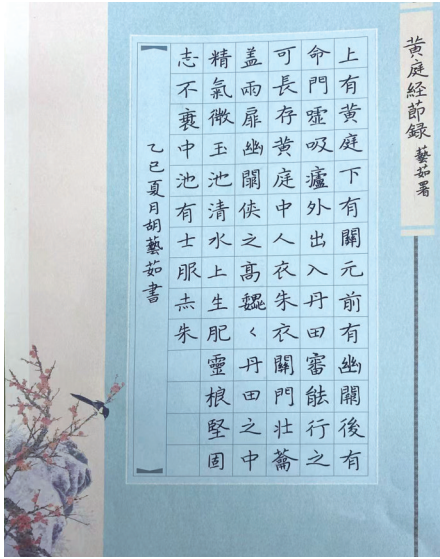 黄庭経節録 藝茹署
上有黄庭下有關元前有幽關後有
命門噓吸廬外出入丹田審能行之
可長存黄庭中人衣朱衣關門壯蘥
盖兩扉幽關俠之高巍〻丹田之中
精氣微玉池清水上生肥靈根堅固
志不衰中池有士服赤朱
乙巳夏月胡藝茹書